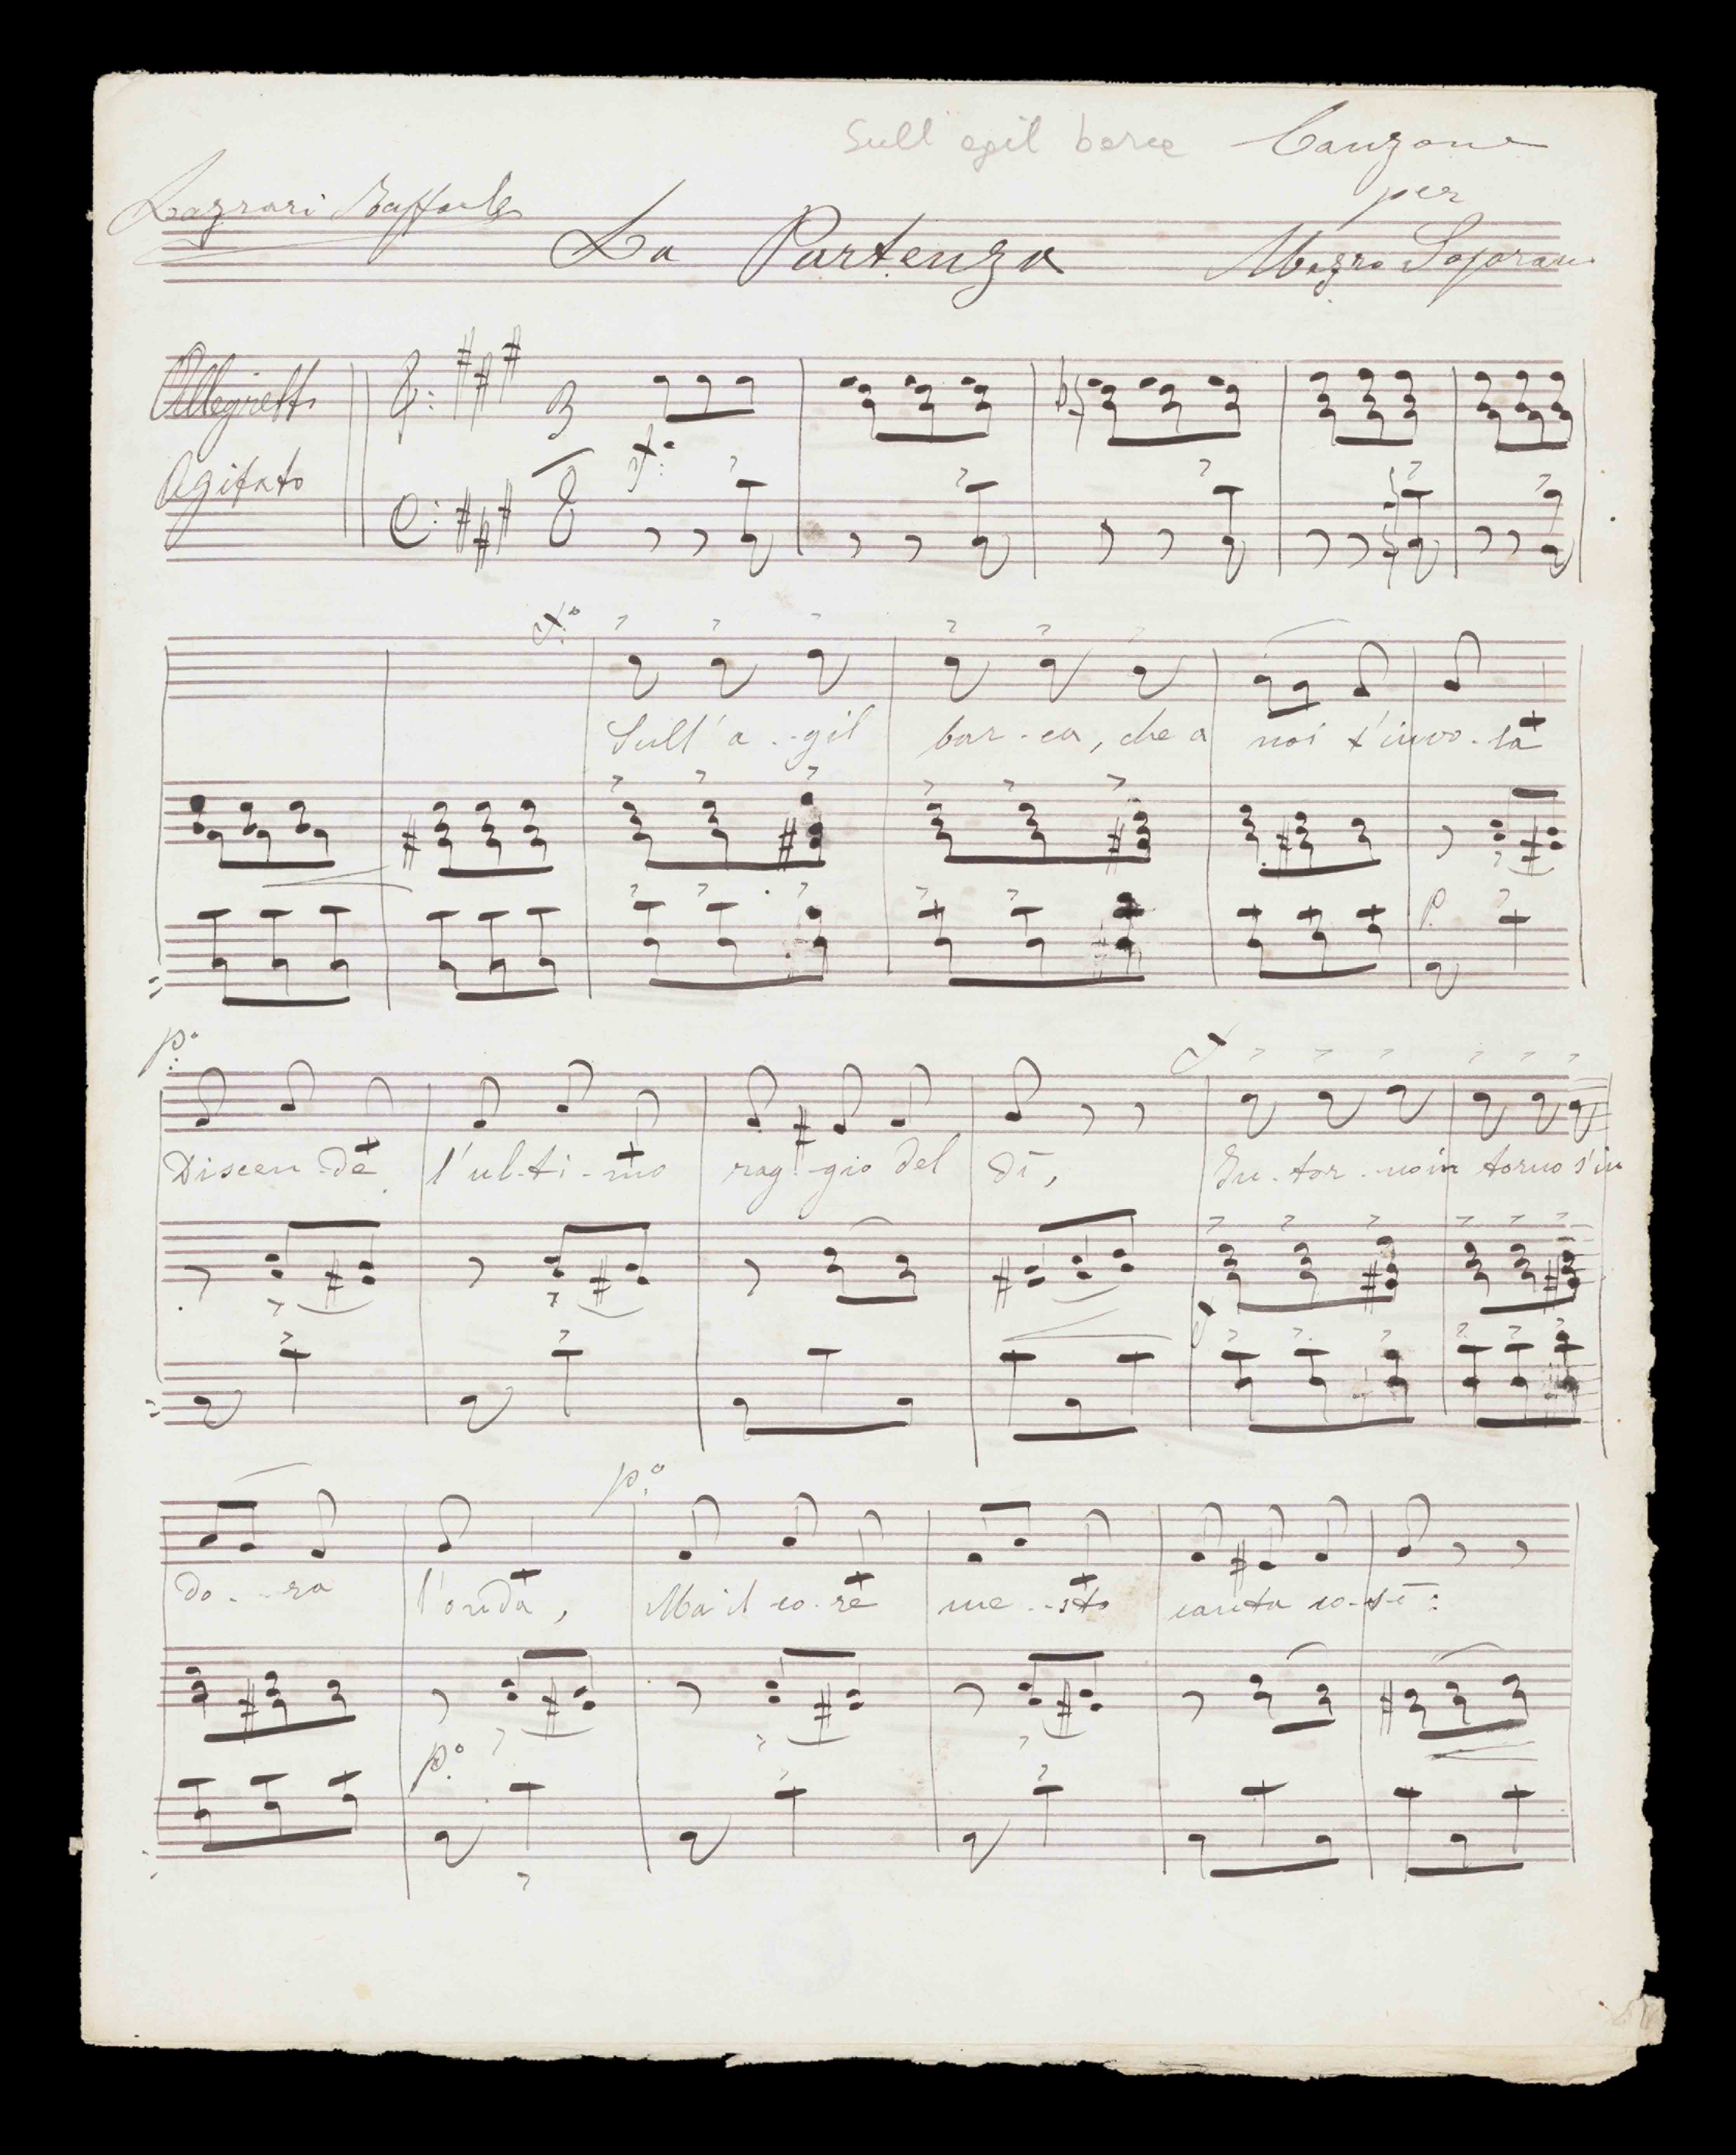 Sull agil barca Canzone
per
Lazzari Raffaele
La Partenza Mezzo Soprano
Allegretto
Agitato
3
8
f.o
f.o
Sull' a - gil bar - ca, che a noi t'invo - la
p.
p.o
Discen - de l'ul - ti - mo rag - gio del dì, In - tor - no in torno s'in
f
p.o
do - ra l'onda, Ma il co - re me - sto canta co - sì :
p.o